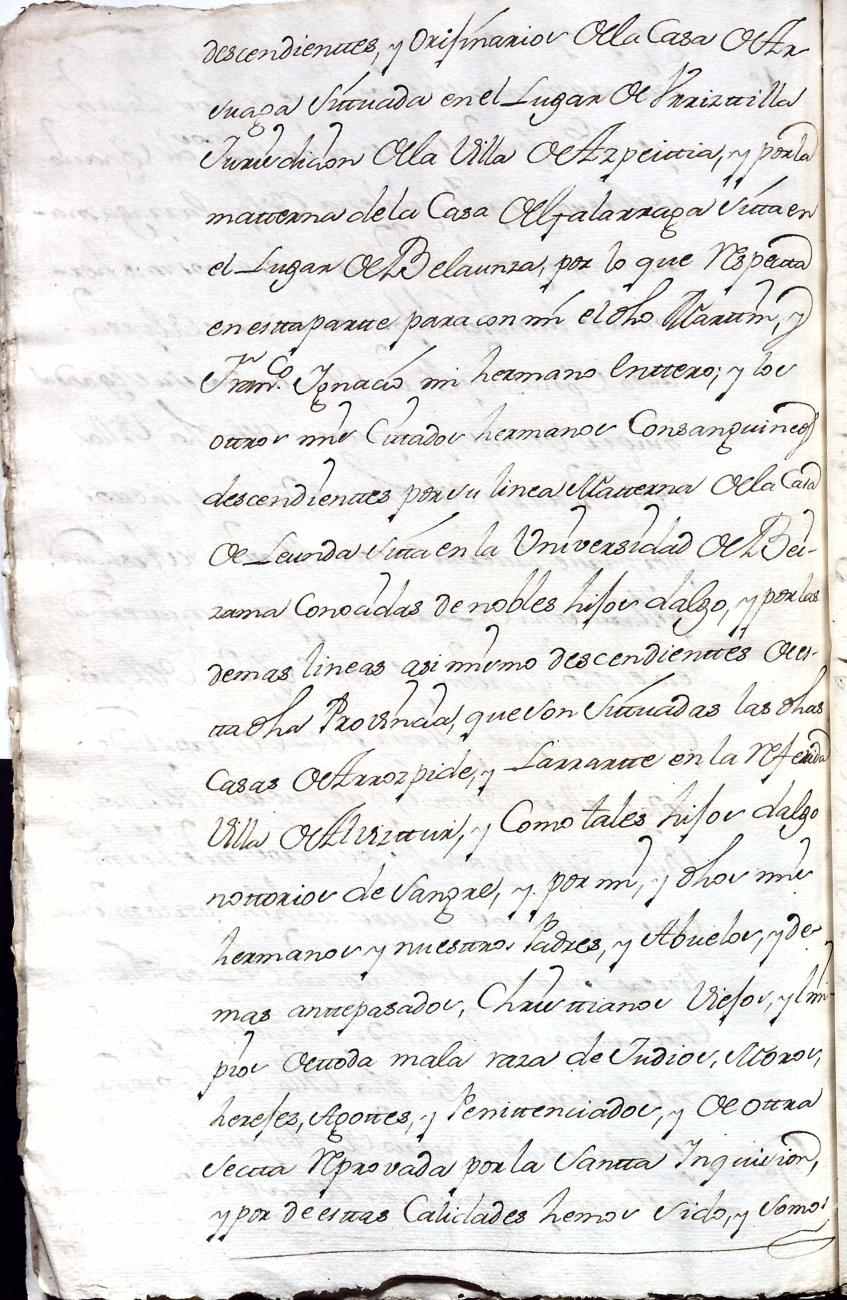 descendienttes, y Orijinarios de la Casa de Ar
suaga Sittuada en el Lugar de Vrrizttilla
Jurisdicion de la Villa de Azpeittia, y por la
matterna de la Casa de Galarraga Sitta en
el Lugar de Belaunza, por lo que Respectta
en estta partte para con mi el dho Marttin, y
Franco. Ygnacio mi hermano Enttero; y los
ottros mis Cittados hermanos Consanguineos
descendienttes por su linea Matterna de la Casa
de Leunda Sitta en la Universidad de Bei-
zama Conocidas de nobles hijos dalgo, y por las
demas lineas asi mismo descendienttes de es-
tta dha Provincia, que son Sittuadas las dhas
Casas de Arrozpide, y Larrartte en la Referida
Villa de Alvizttur, y Como tales hijos dalgo
nottorios de Sangre, y por mi, y dhos mis
hermanos y nuesttros Padres, y Abuelos, y de-
mas anttepasados, Christtianos Viejos, y lim-
pios de ttoda mala raza de Judios, Moros,
herejes, Agottes, y Penittenciados, y de ottra
Sectta Reprovada por la Santta Inquisicion,
y por de esttas Calidades hemos sido, y Somos